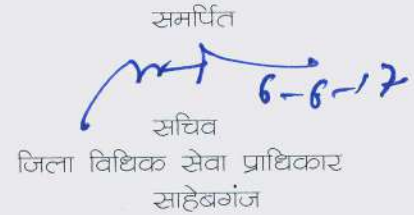 समर्पित
6-6-17
सचिव
जिला विधिक सेवा प्राधिकार
साहेबगंज